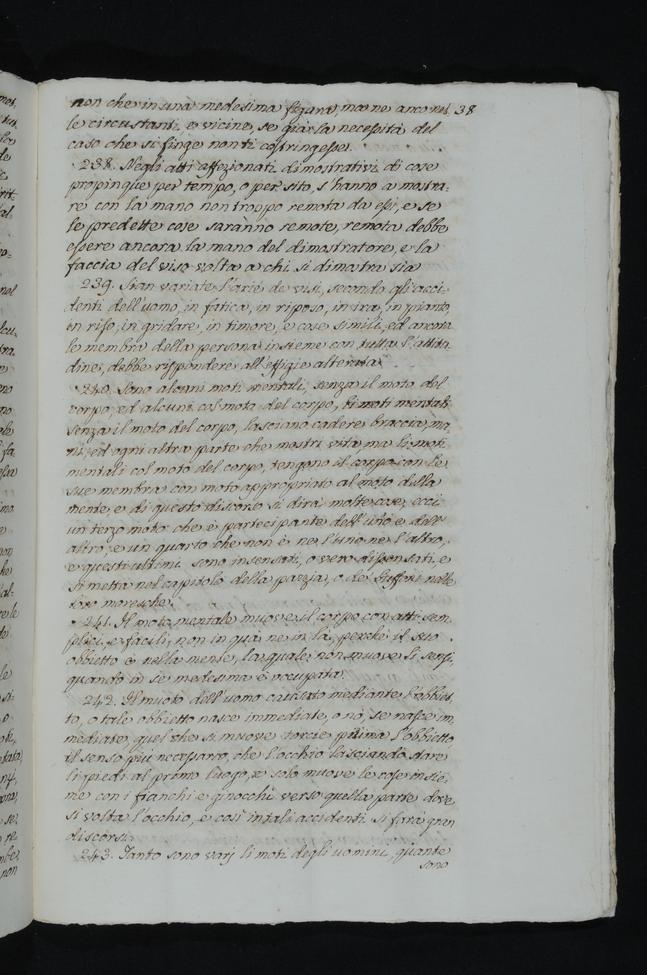 non che in una medesima figura, ma ne anco nel- 38
le circustanti, e vicine, se già la necessità del
caso che si finge non ti costringesse.
238. Negli atti affezionati dimostrativi di cose
propinque per tempo, o per sito, s'hanno a mostra-
re con la mano non troppo remota da essi, e se
le predette cose saranno remote, remota debbe
essere ancora la mano del dimostratore, e la
faccia del viso volta a chi si dimostra sia
239. Sian variate l'arie de visi, secondo gli acci-
denti dell'uomo, in fatica, in riposo, in ira, in pianto,
in riso, in gridare, in timore, e cose simili, ed ancora
le membra della persona insieme con tutta l'attitu
dine, debbe rispondere all'effigie alterata
240. Sono alcuni moti mentali senza il moto del
corpo, ed alcuni col moto del corpo, li moti mentali
senza il moto del corpo, lasciano cadere braccia, ma
ni, ed ogni altra parte che mostri vita, ma li moti
mentali col moto del corpo, tengono il corpo con le
sue membra con moto appropriato al moto della
mente, e di questo discorso si dirà molte cose, ecci
un terzo moto che è partecipante dell'uno e dell'
altro, e un quarto che non è ne l'uno ne l'altro,
e questi ultimi sono insensati, o vero dissensati, e
si metta nel capitolo della pazzia, o de buffoni nelle
loro moresche.
241. Il moto mentale muove il corpo con atti sem
plici, e facili, non in quà, ne in là, perchè il suo
obbietto è nella mente, la quale non muove li sensi,
quando in se medesima è occupata.
242. Il muoto dell'uomo causato mediante l'obbiet
to, o tale obbietto nasce immediate, o nò, se nasce im
mediate, quel che si muove torcie prima l'obbietto
il senso più necessario, che l'occhio lasciando stare
li piedi al primo luogo, e solo muove le cose insie-
me con i fianchi e ginocchi verso quella parte dove
si volta l'occhio, e così in tali accidenti si farà gran
discorsi.
243. Tanto sono varj li moti degli uomini, quante
sono